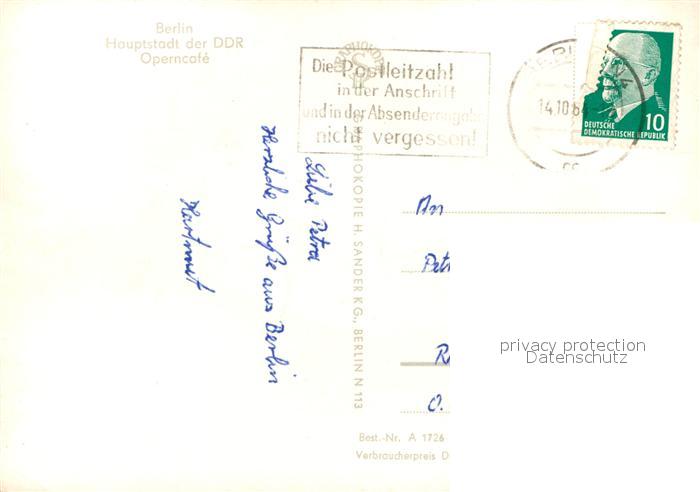 Berlin
Hauptstadt der DDR
Operncafé
GRAPHOKOPIE H. SANDER KG., BERLIN N 113
Die Postleitzahl
in der Anschrift
und in der Absenderangabe
nicht vergessen!
14.10.64
DEUTSCHE
DEMOKRATISCHE REPUBLIK
10
Liebe Petra
Herzliche Grüße aus Berlin
Hartmut
An
Petr
R
O.
privacy protection
Datenschutz
Best.-Nr. A 1726
Verbraucherpreis D